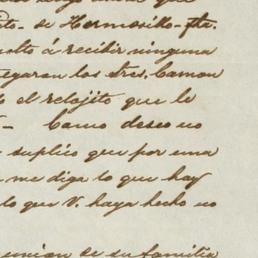 Pto. de Hermosillo fha.
á recibir ninguna
los tres, Camon
el relojito que le
- Como deseo no
suplico que por una
me diga lo que hay
lo que V. haya hecho no
union de su familia